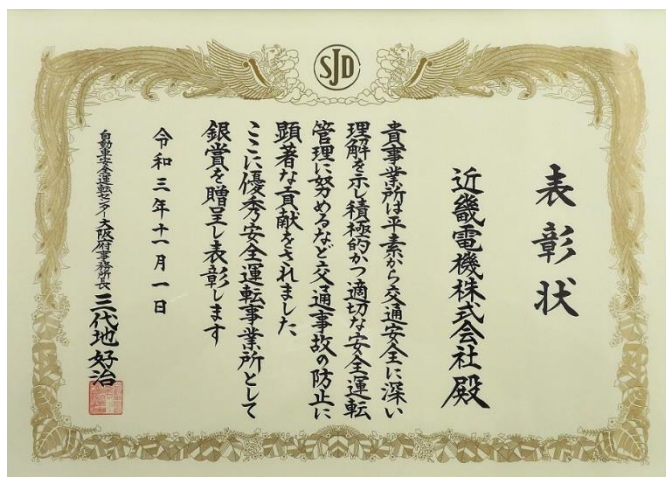 SJD
表彰状
近畿電機株式会社殿
貴事業所は平素から交通安全に深い
理解を示し積極的かつ適切な安全運転
管理に努めるなど交通事故の防止に
顕著な貢献をされました
ここに優秀安全運転事業所として
銀賞を贈呈し表彰します
令和三年十一月一日
自動車安全運転センター大阪府事務所長 三代地好治